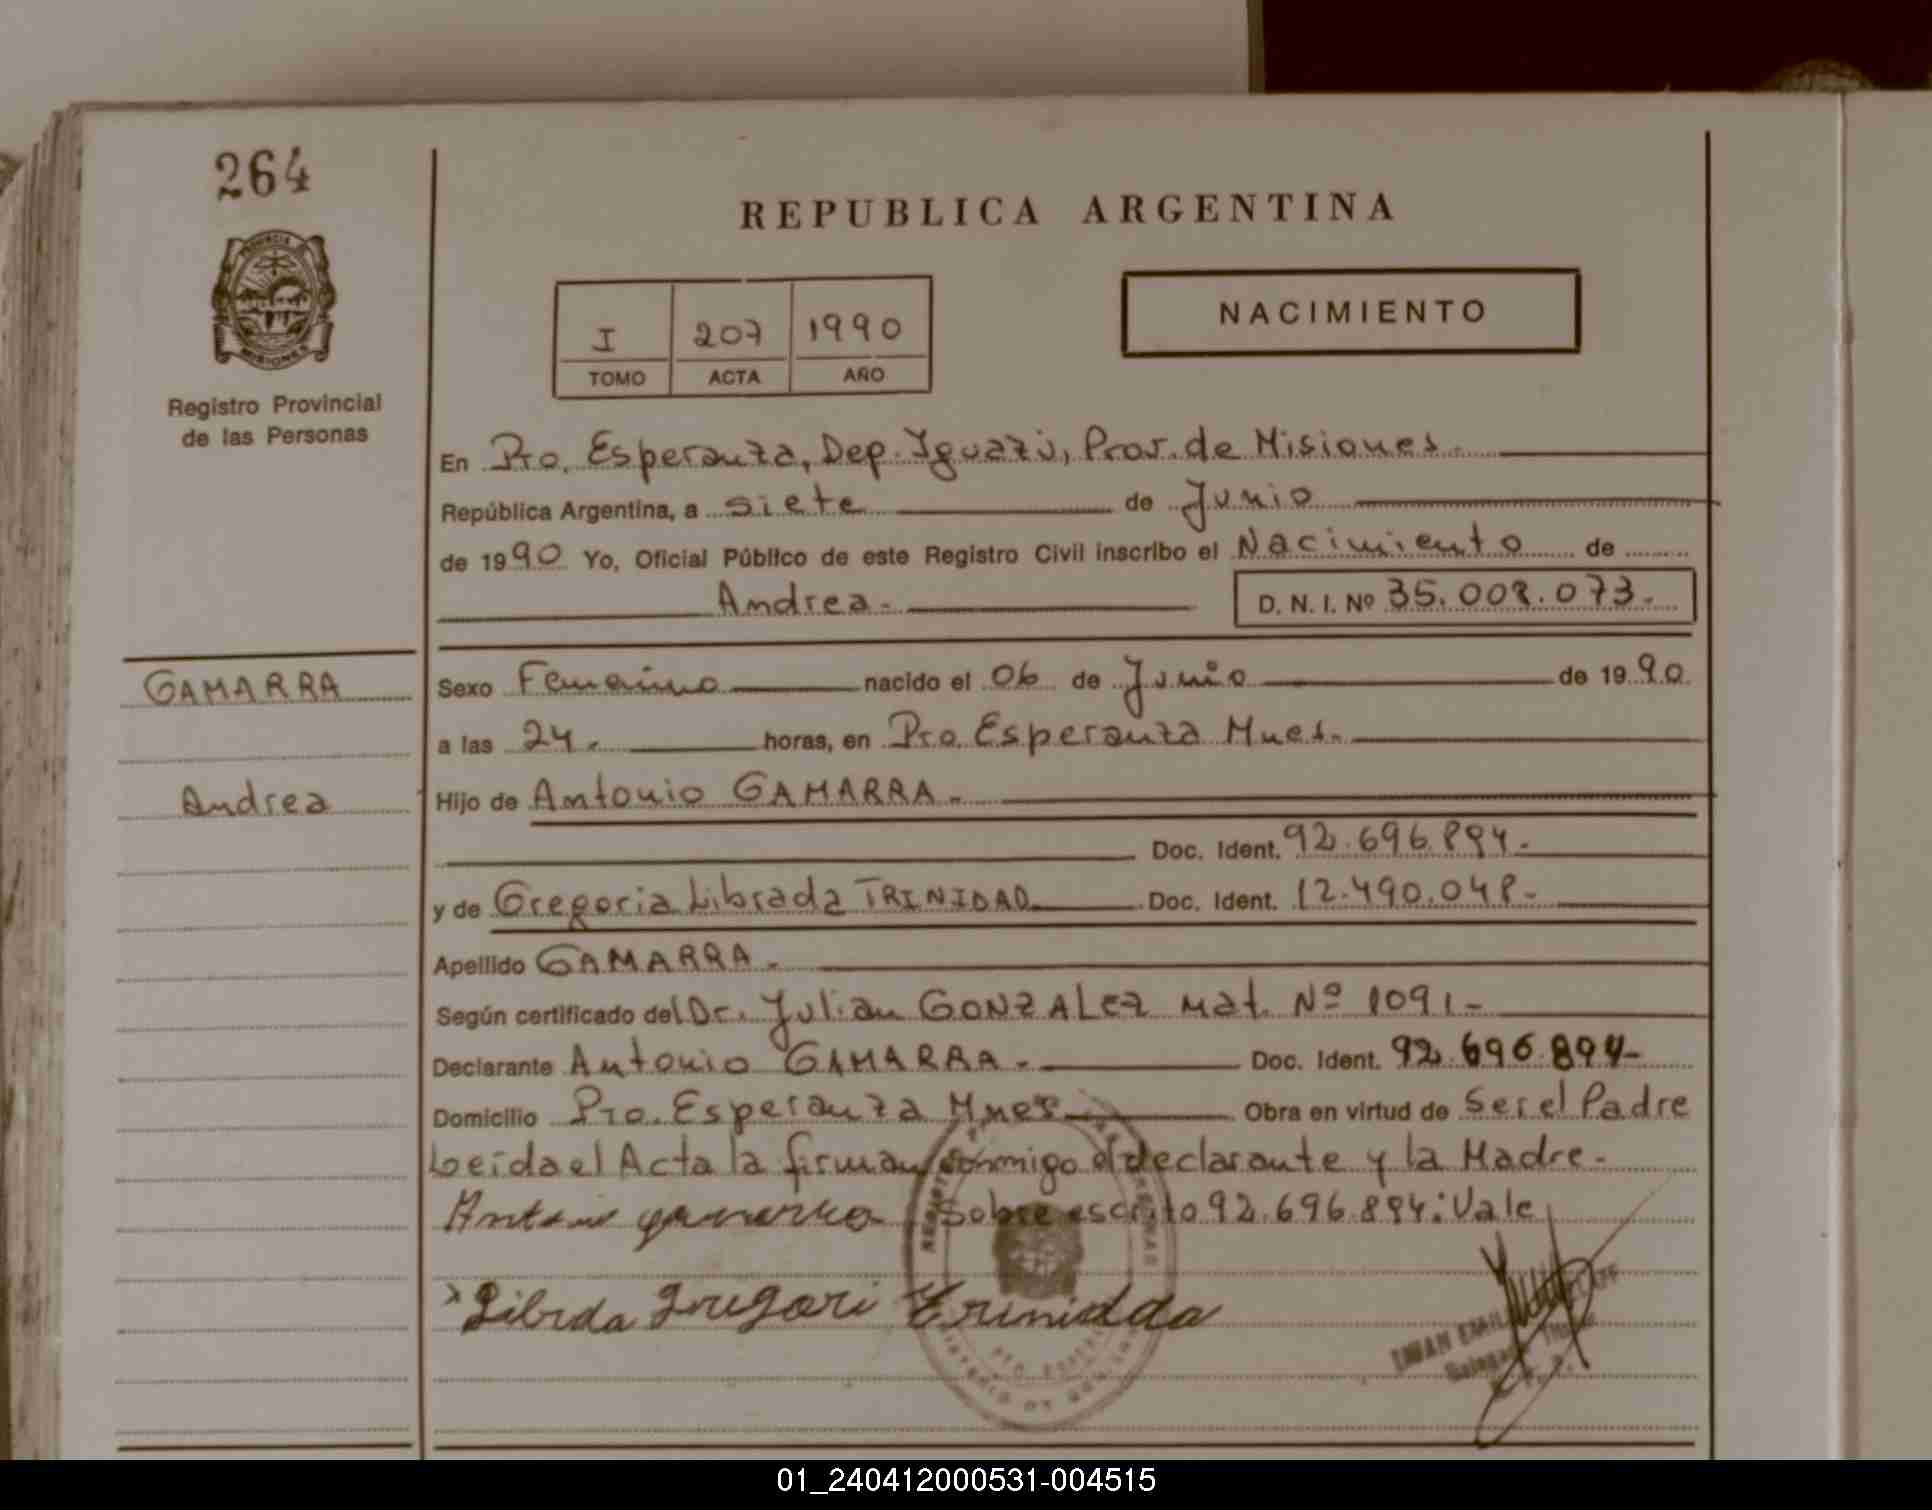 264
REPUBLICA ARGENTINA
PROVINCIA
MISIONES
Registro Provincial
de las Personas
I 207 1990
TOMO ACTA AÑO
NACIMIENTO
En Pto. Esperanza, Dep. Iguazú, Prov. de Misiones.
República Argentina, a siete de Junio
de 1990 Yo, Oficial Público de este Registro Civil inscribo el Nacimiento de
Andrea.
D. N. I. Nº 35.008.073.
GAMARRA
Andrea
Sexo Femenino nacido el 06 de Junio de 1990
a las 24. horas, en Pto. Esperanza Mnes.
Hijo de Antonio GAMARRA.
Doc. Ident. 92.696.894.
y de Gregoria Librada TRINIDAD Doc. Ident. 12.490.048.
Apellido GAMARRA.
Según certificado del Dr. Julian GONZALEZ Mat. Nº 1091-
Declarante Antonio GAMARRA. Doc. Ident. 92.696.894-
Domicilio Pto. Esperanza Mnes Obra en virtud de Ser el Padre
Leída el Acta la firman conmigo el declarante y la Madre.
Antonio gamarra Sobre escrito 92.696.894: Vale
Librda Gregori Trinidda
01_240412000531-004515